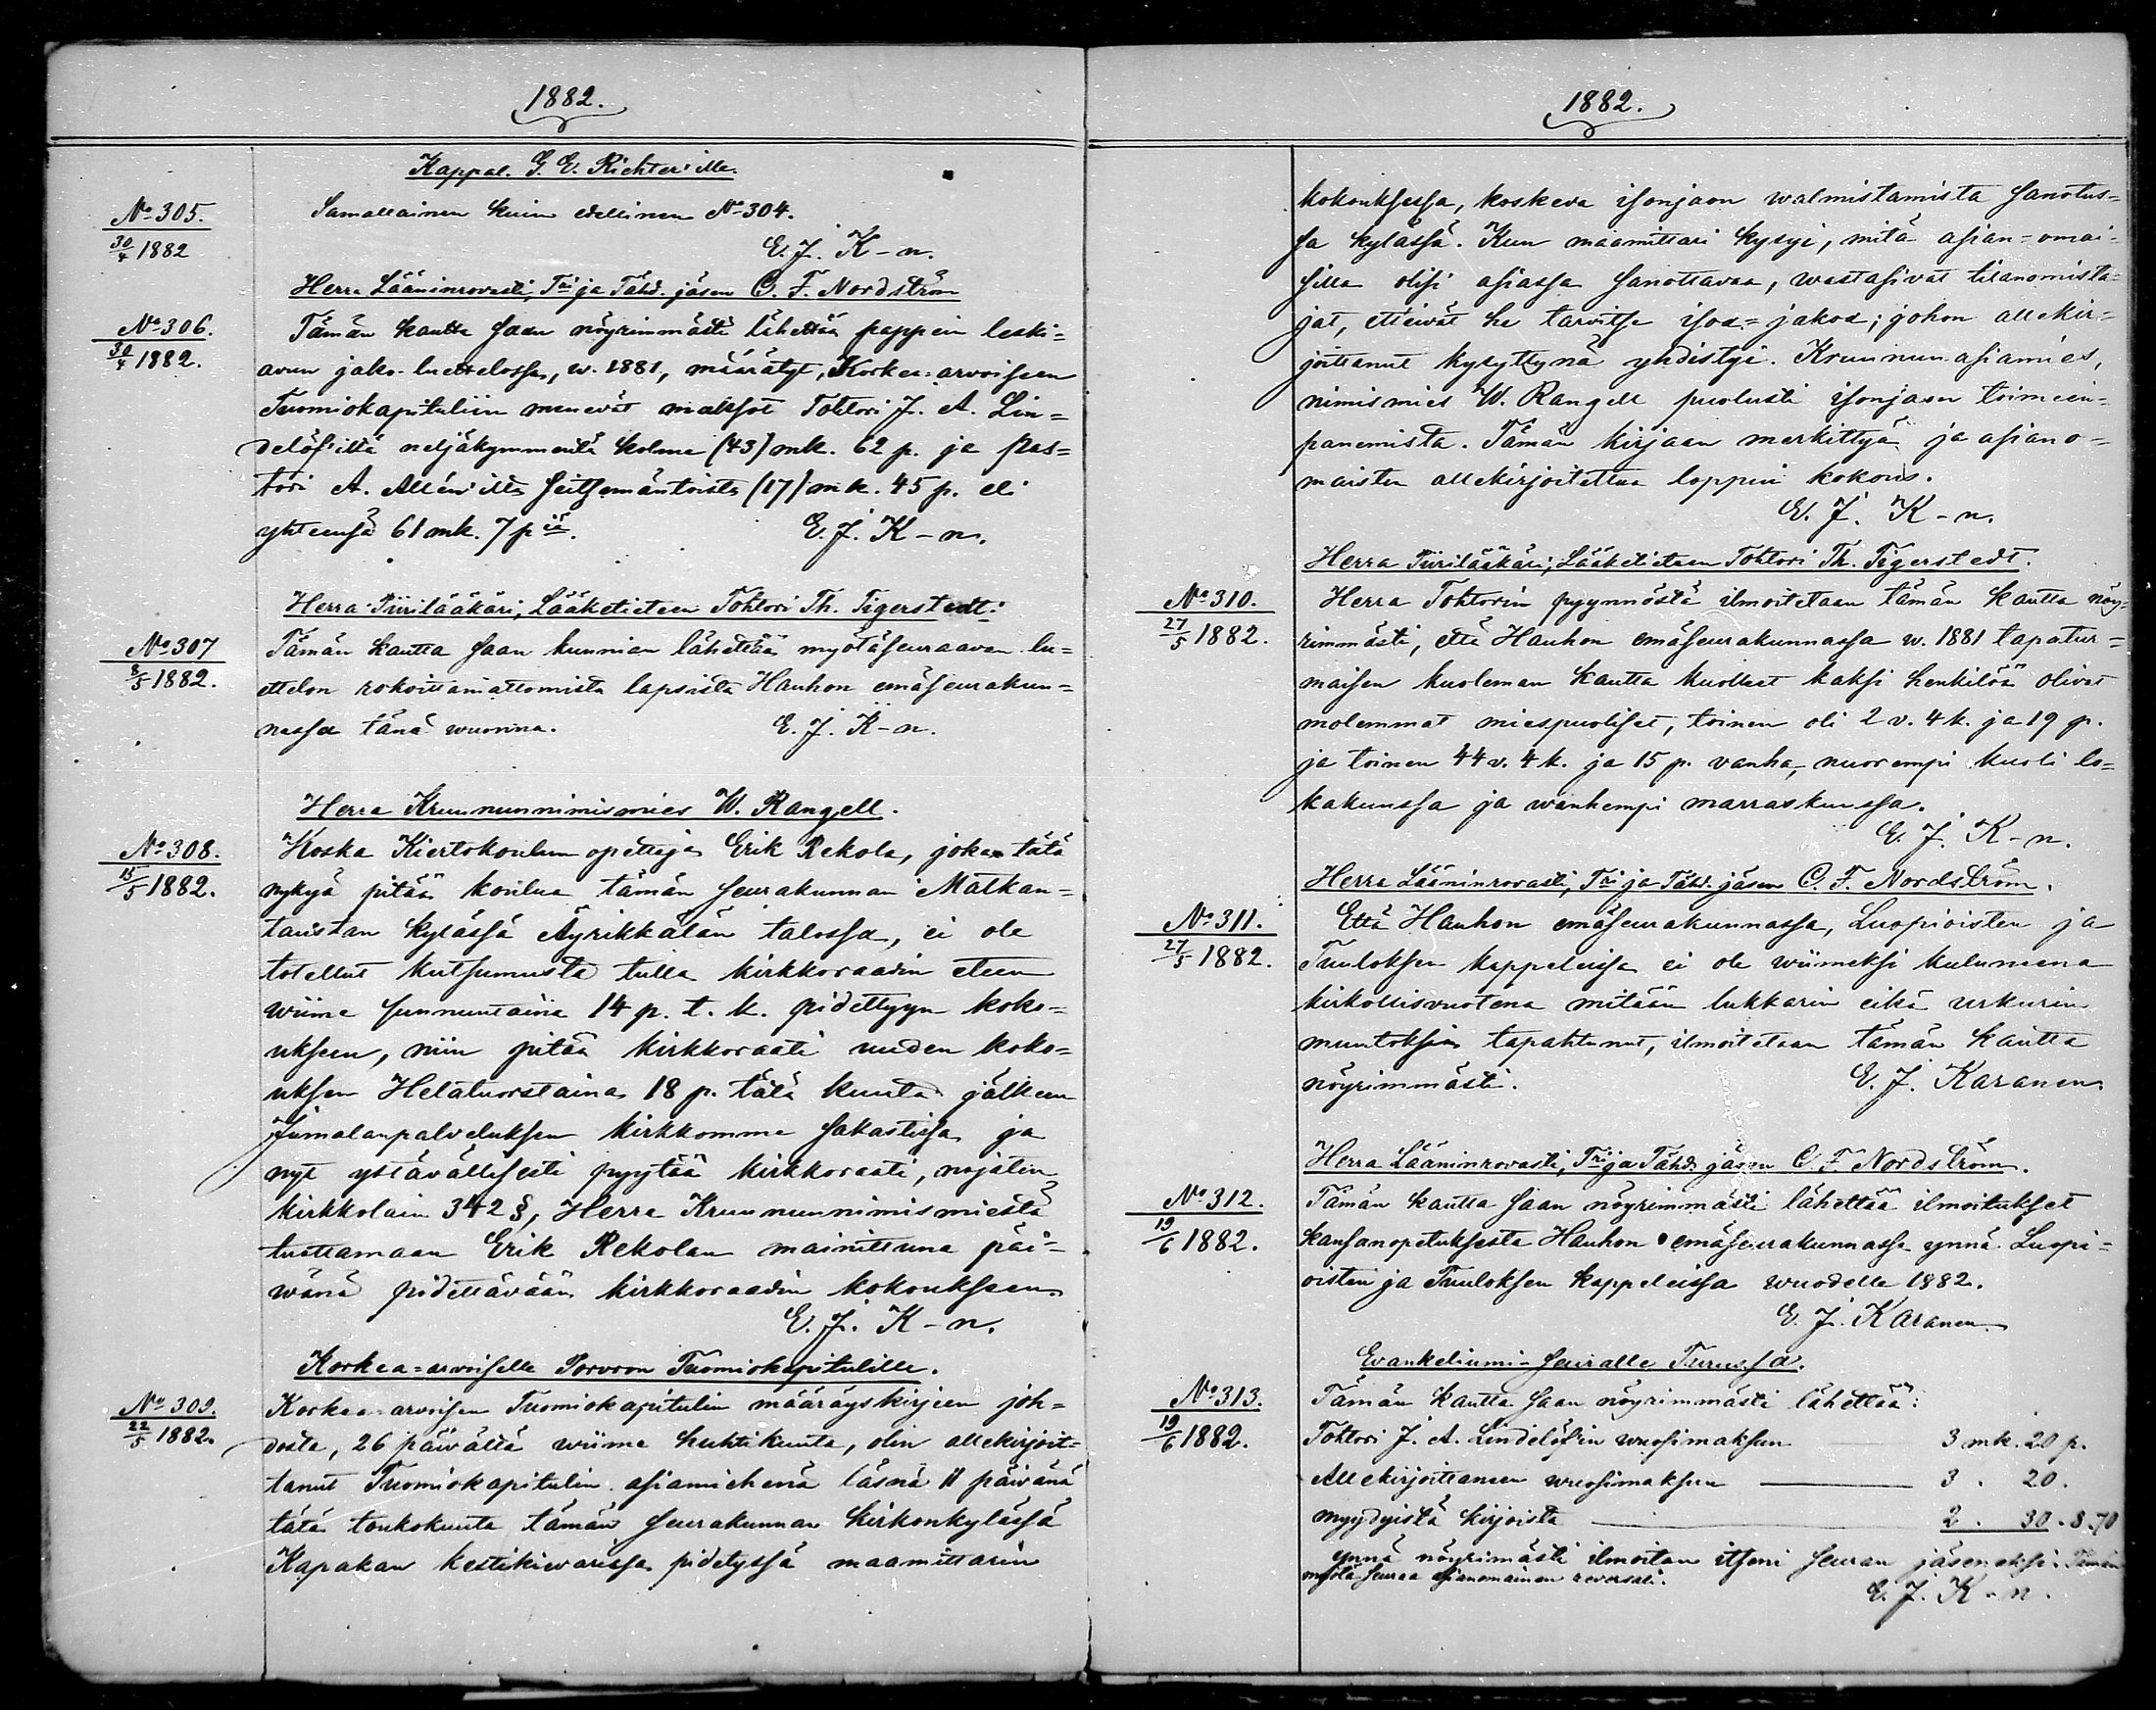 1882.
Kappal. G. E. Richter'ille.
No 305.
30/4 1882
Samallainen kuin edellinen No 304.
E. J. K-n.
Herra Lääninrovasti, Tri ja Tähd. jäsen C. F. Nordström
No 306.
30/4 1882.
Tämän kautta saan nöyrimmästi lähettää pappein leski-
avun jako-luettelossa, w. 1881, määrätyt, Korkea-arvoiseen
Tuomiokapituliin menevät maksot Tohtori J. A. Lin-
delöf'iltä neljäkymmentä kolme (43) mk. 62 p. ja Pas-
tori A. Allén'ilta seitsemäntoista (17) mk. 45 p. eli
yhteensä 61 mk. 7 p:iä.
E. J. K-n.
Herra Piirilääkäri, Lääketieteen Tohtori Th. Tigerstedt.
No 307
8/5 1882.
Tämän kautta saan kunnian lähettää myötäseuraavan lu-
ettelon rokoittamattomista lapsista Hauhon emäseurakun-
nassa tänä wuonna.
E. J. K-n.
Herra Kruununnimismies W. Rangell.
No 308.
15/5 1882.
Koska Kiertokoulun opettaja Erik Rekola, joka tätä
nykyä pitää koulua tämän seurakunnan Matkan-
taustan kylässä Äyrikkälän talossa, ei ole
totellut kutsumusta tulla kirkkoraadin eteen
wiime sunnuntaina 14 p. t. k. pidettyyn koko-
ukseen, niin pitää kirkkoraati uuden koko-
uksen Helatuorstaina 18 p. tätä kuuta jälkeen
Jumalanpalveluksen kirkkomme sakastissa ja
nyt ystävällisesti pyytää kirkkoraati, nojaten
kirkkolain 342 §, Herra Kruununnimismiestä
tuottamaan Erik Rekolan mainittuna päi-
wänä pidettävään kirkkoraadin kokoukseen.
E. J. K-n.
Korkea-arvoiselle Porvoon Tuomiokapitulille.
No 309.
22/5 1882.
Korkea-arvoisen Tuomiokapitulin määräyskirjeen joh-
dosta, 26 päivältä wiime huhtikuuta, olin allekirjoit-
tanut Tuomiokapitulin asiamiehenä läsnä 11 päivänä
tätä toukokuuta tämän seurakunnan Kirkonkylässä
Kapakan kestikiewarissa pidetyssä maamittarin
1882.
kokouksessa, koskeva isonjaon walmistamista sanotus-
sa kylässä. Kun maamittari kysyi, mitä asian-omai-
silla olisi asiassa sanottavaa, wastasivat tilanomista-
jat, etteivät he tarvitse isoa-jakoa; johon allekir-
joittanut kysyttynä yhdistyi. Kruunun asiamies,
nimismies W. Rangell puolusti isonjaon toimeen-
panemista. Tämän kirjaan merkittyä ja asiano-
maisten allekirjoitettua loppui kokous.
E. J. K-n.
Herra Piirilääkäri, Lääketieteen Tohtori Th. Tigerstedt.
No 310.
27/5 1882.
Herra Tohtorin pyynnöstä ilmoitetaan tämän kautta nöy-
rimmästi, että Hauhon emäseurakunnassa w. 1881 tapatur-
maisen kuoleman kautta kuolleet kaksi henkilöä olivat
molemmat miespuoliset, toinen oli 2 v. 4 k. ja 19 p.
ja toinen 44 v. 4 k. ja 15 p. vanha, nuorempi kuoli lo-
kakuussa ja wanhempi marraskuussa.
E. J. K-n.
Herra Lääninrovasti, Tri ja Tähd. jäsen C. F. Nordström.
No 311.
27/5 1882.
Että Hauhon emäseurakunnassa, Luopioisten ja
Tuuloksen kappeleissa ei ole wiimeksi kuluneena
kirkollisvuotena mitään lukkarin eikä urkurin
muutoksia tapahtunut, ilmoitetaan tämän kautta
nöyrimmästi.
E. J. Karanen.
Herra Lääninrovasti, Tri ja Tähd. jäsen C. F. Nordström.
No 312.
19/6 1882.
Tämän kautta saan nöyrimmästi lähettää ilmoitukset
kansanopetuksesta Hauhon emäseurakunnassa ynnä Luopi-
oisten ja Tuuloksen kappeleissa wuodelle 1882.
E. J. Karanen.
Evankeliumi-seuralle Turussa.
No 313.
19/6 1882.
Tämän kautta saan nöyrimmästi lähettää:
Tohtori J. A. Lindelöf'in wuosimaksun 3 mk. 20 p.
Allekirjoittaneen wuosimaksun 3. 20.
myydyistä kirjoista 2. 30. 8,70
ynnä nöyrimästi ilmoitan itseni seuran jäseneksi. Tämän
myötä seuraa asianomainen reversali.
E. J. K-n.